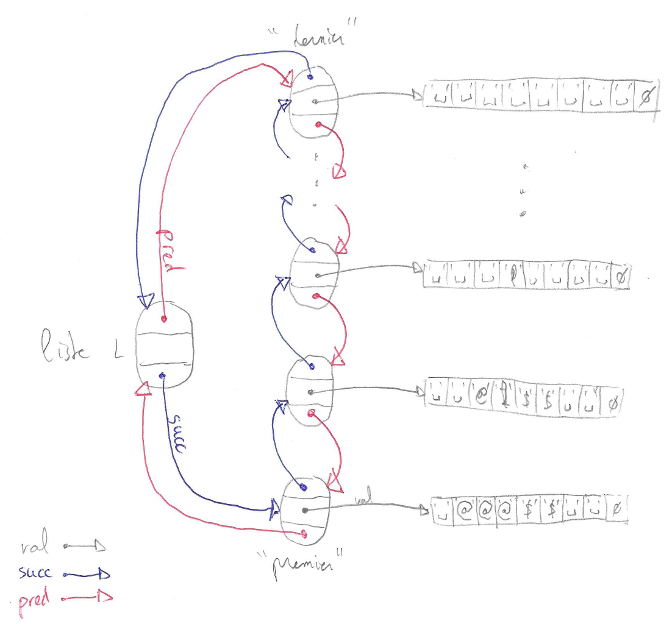 "dernier"
␣ ␣ ␣ ␣ ␣ ␣ ␣ ␣ ∅
pred
␣ ␣ ␣ ␣ ␣ ␣ ␣ ∅
liste L
␣ ␣ @ $ $ ␣ ␣ ∅
succ
val
␣ @ @ @ $ $ ␣ ␣ ∅
"premier"
val
succ
pred